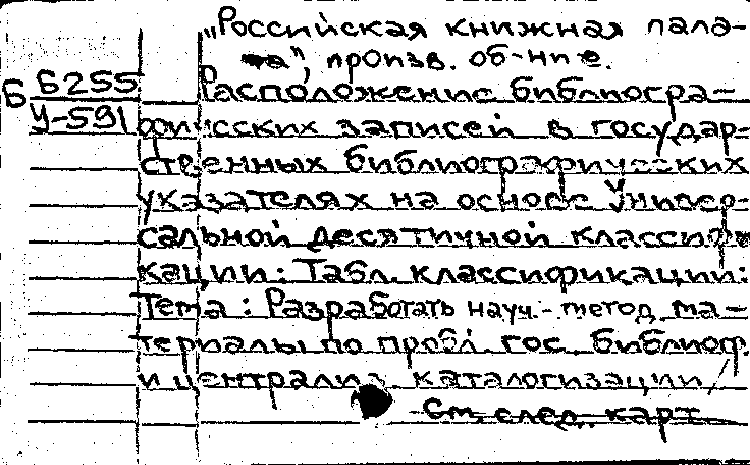 „Российская книжная пала-
та", произв. об-ние.
Б Б255
Расположение библиогра-
У-591
фических записей в государ-
ственных библиографических
указателях на основе Универ-
сальной десятичной классифи-
кации: Табл. классификации:
Тема: Разработать науч.-метод. ма-
териалы по пробл. гос. библиогр.
и централиз. каталогизации /
См. след. карт.